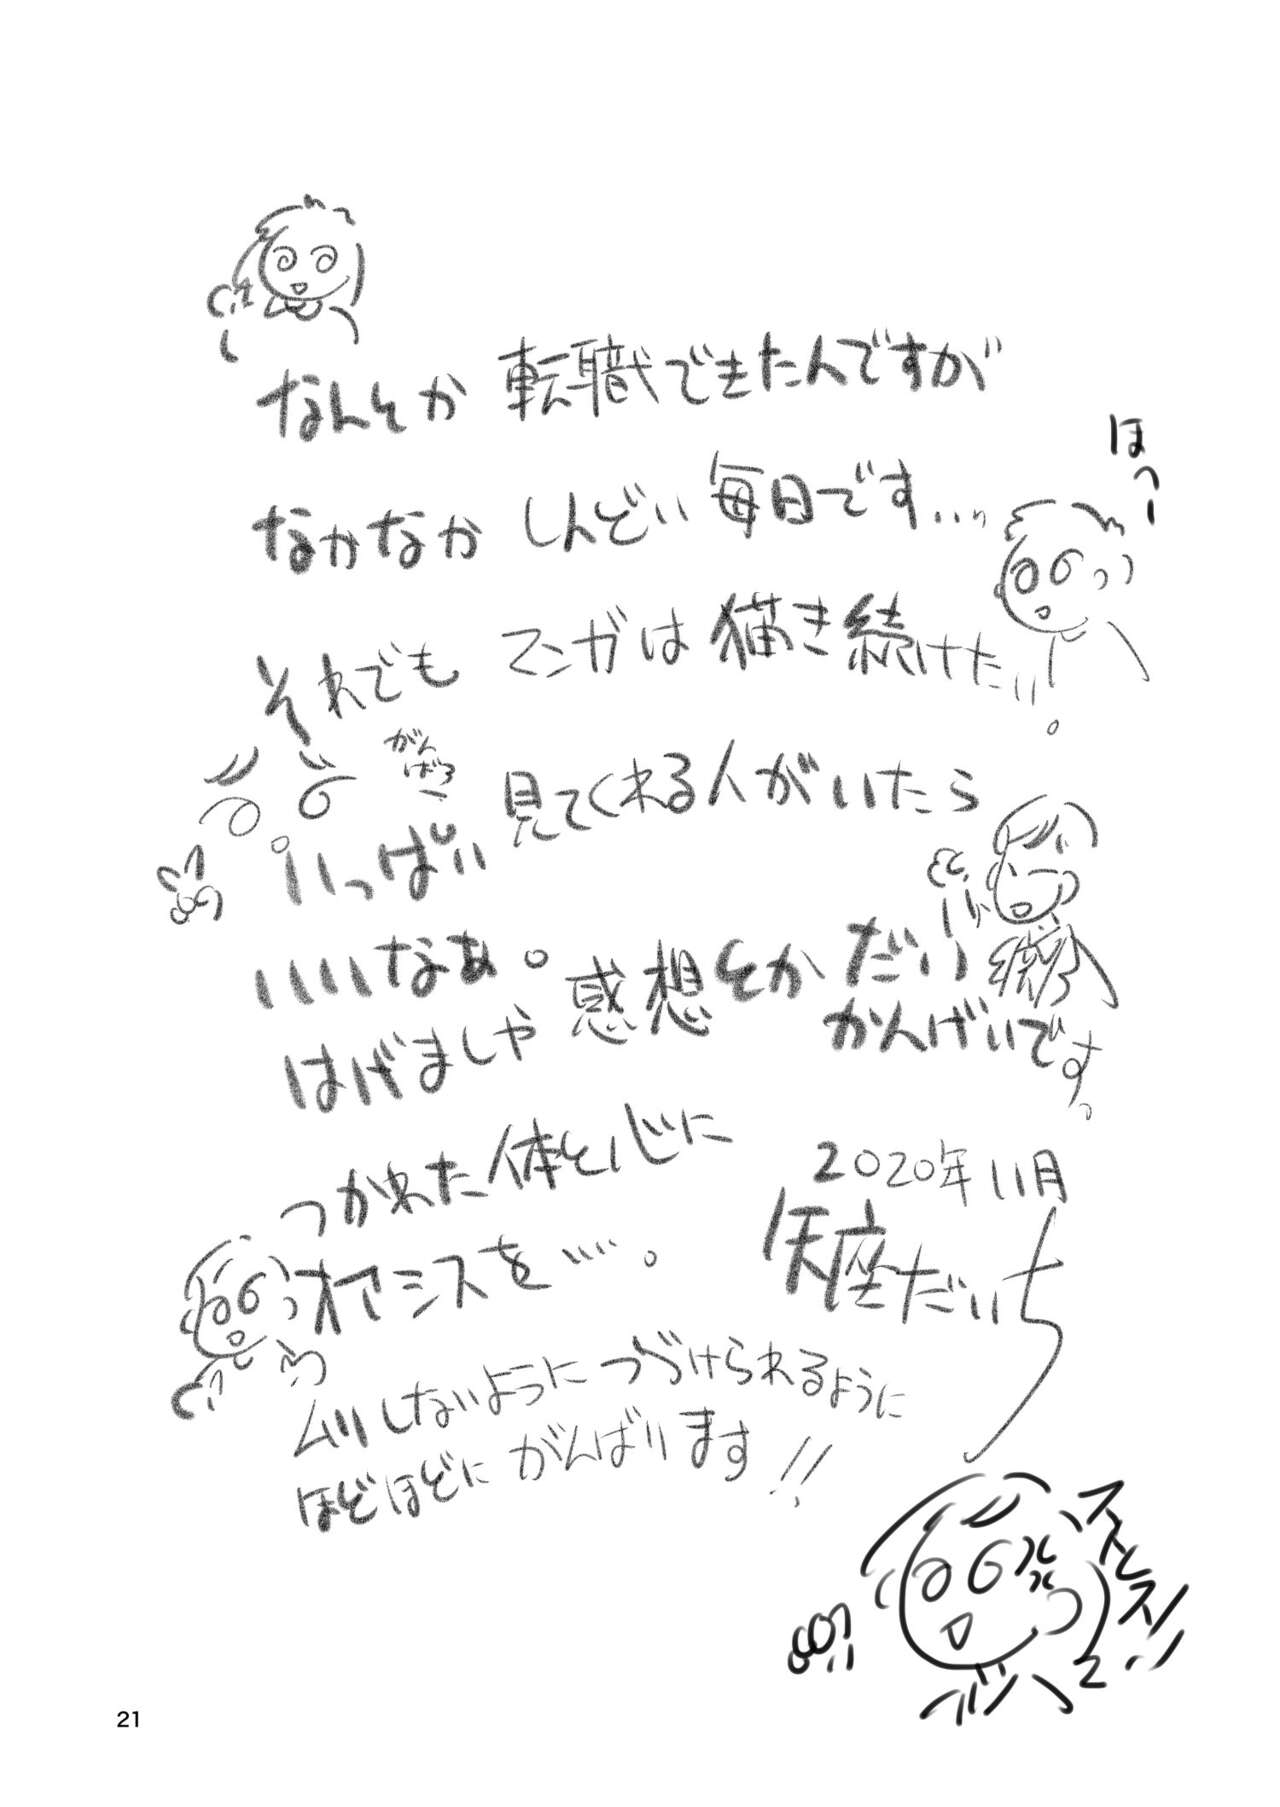 なんとか転職できたんですが
なかなかしんどい毎日です…
ほっー
それでもマンガは描き続けたい。
がん
ばろー
いっぱい見てくれる人がいたら
いいなあ。
はげましや感想とかだい
かんげいです。
つかれた体と心に
オアシスを…。
2020年11月
矢座だいち
ムリしないようにつづけられるように
ほどほどにがんばります!!
ストレス
21